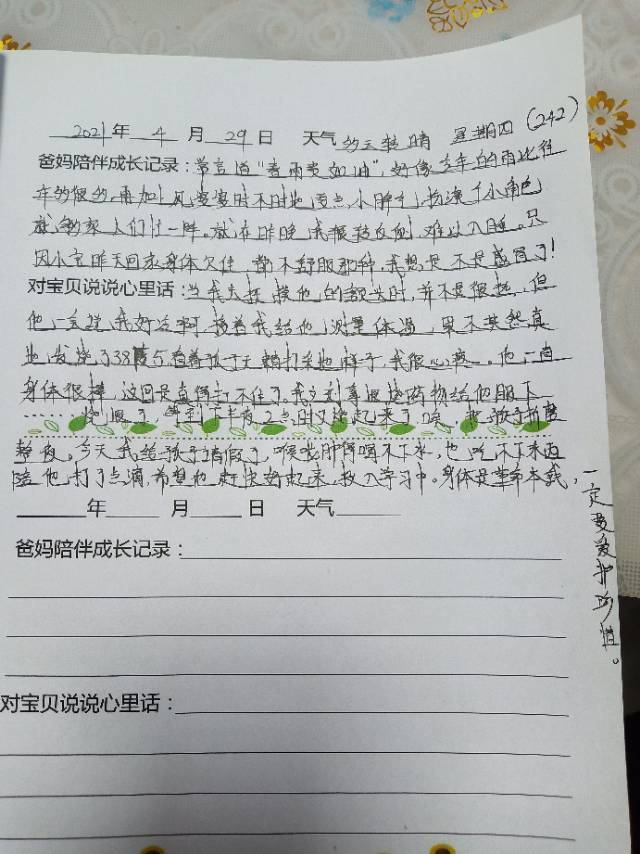 2021年 4 月 29日 天气 多云转晴 星期四 (242)
爸妈陪伴成长记录:常言道"春雨贵如油",好像今年的雨比往
年多很多,再加上风婆婆时不时地耍点小脾气,扮演个小角色
就够家人们忙一阵。就在昨晚我辗转反侧,难以入睡。只
因小宝昨天回家身体欠佳,那不舒服那种,我想是不是感冒了!
对宝贝说说心里话:当我去抚摸他的额头时,并不是很热,但
他一直说我好冷啊,接着我给他测量体温,果不其然真
地发烧了38度5,看着孩子无精打采地样子,我很心疼。他一向
身体很棒,这回是真得扛不住了。我立刻拿退烧药物给他服下
烧退了,等到下半夜2点时又烧起来了唉,把孩子折腾
整夜。今天我给孩子请假了,喉咙肿得咽不下水,也吃不下东西
陪他打了点滴,希望他赶快好起来,投入学习中。身体是革命本钱,
一定要爱护
年 月 日 天气
爸妈陪伴成长记录:
对宝贝说说心里话: